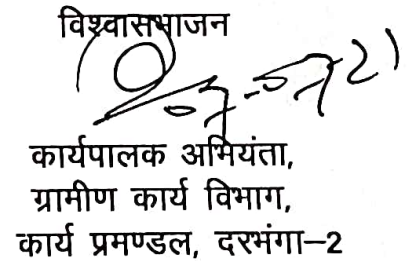 विश्वासभाजन
कार्यपालक अभियंता,
ग्रामीण कार्य विभाग,
कार्य प्रमण्डल, दरभंगा–2